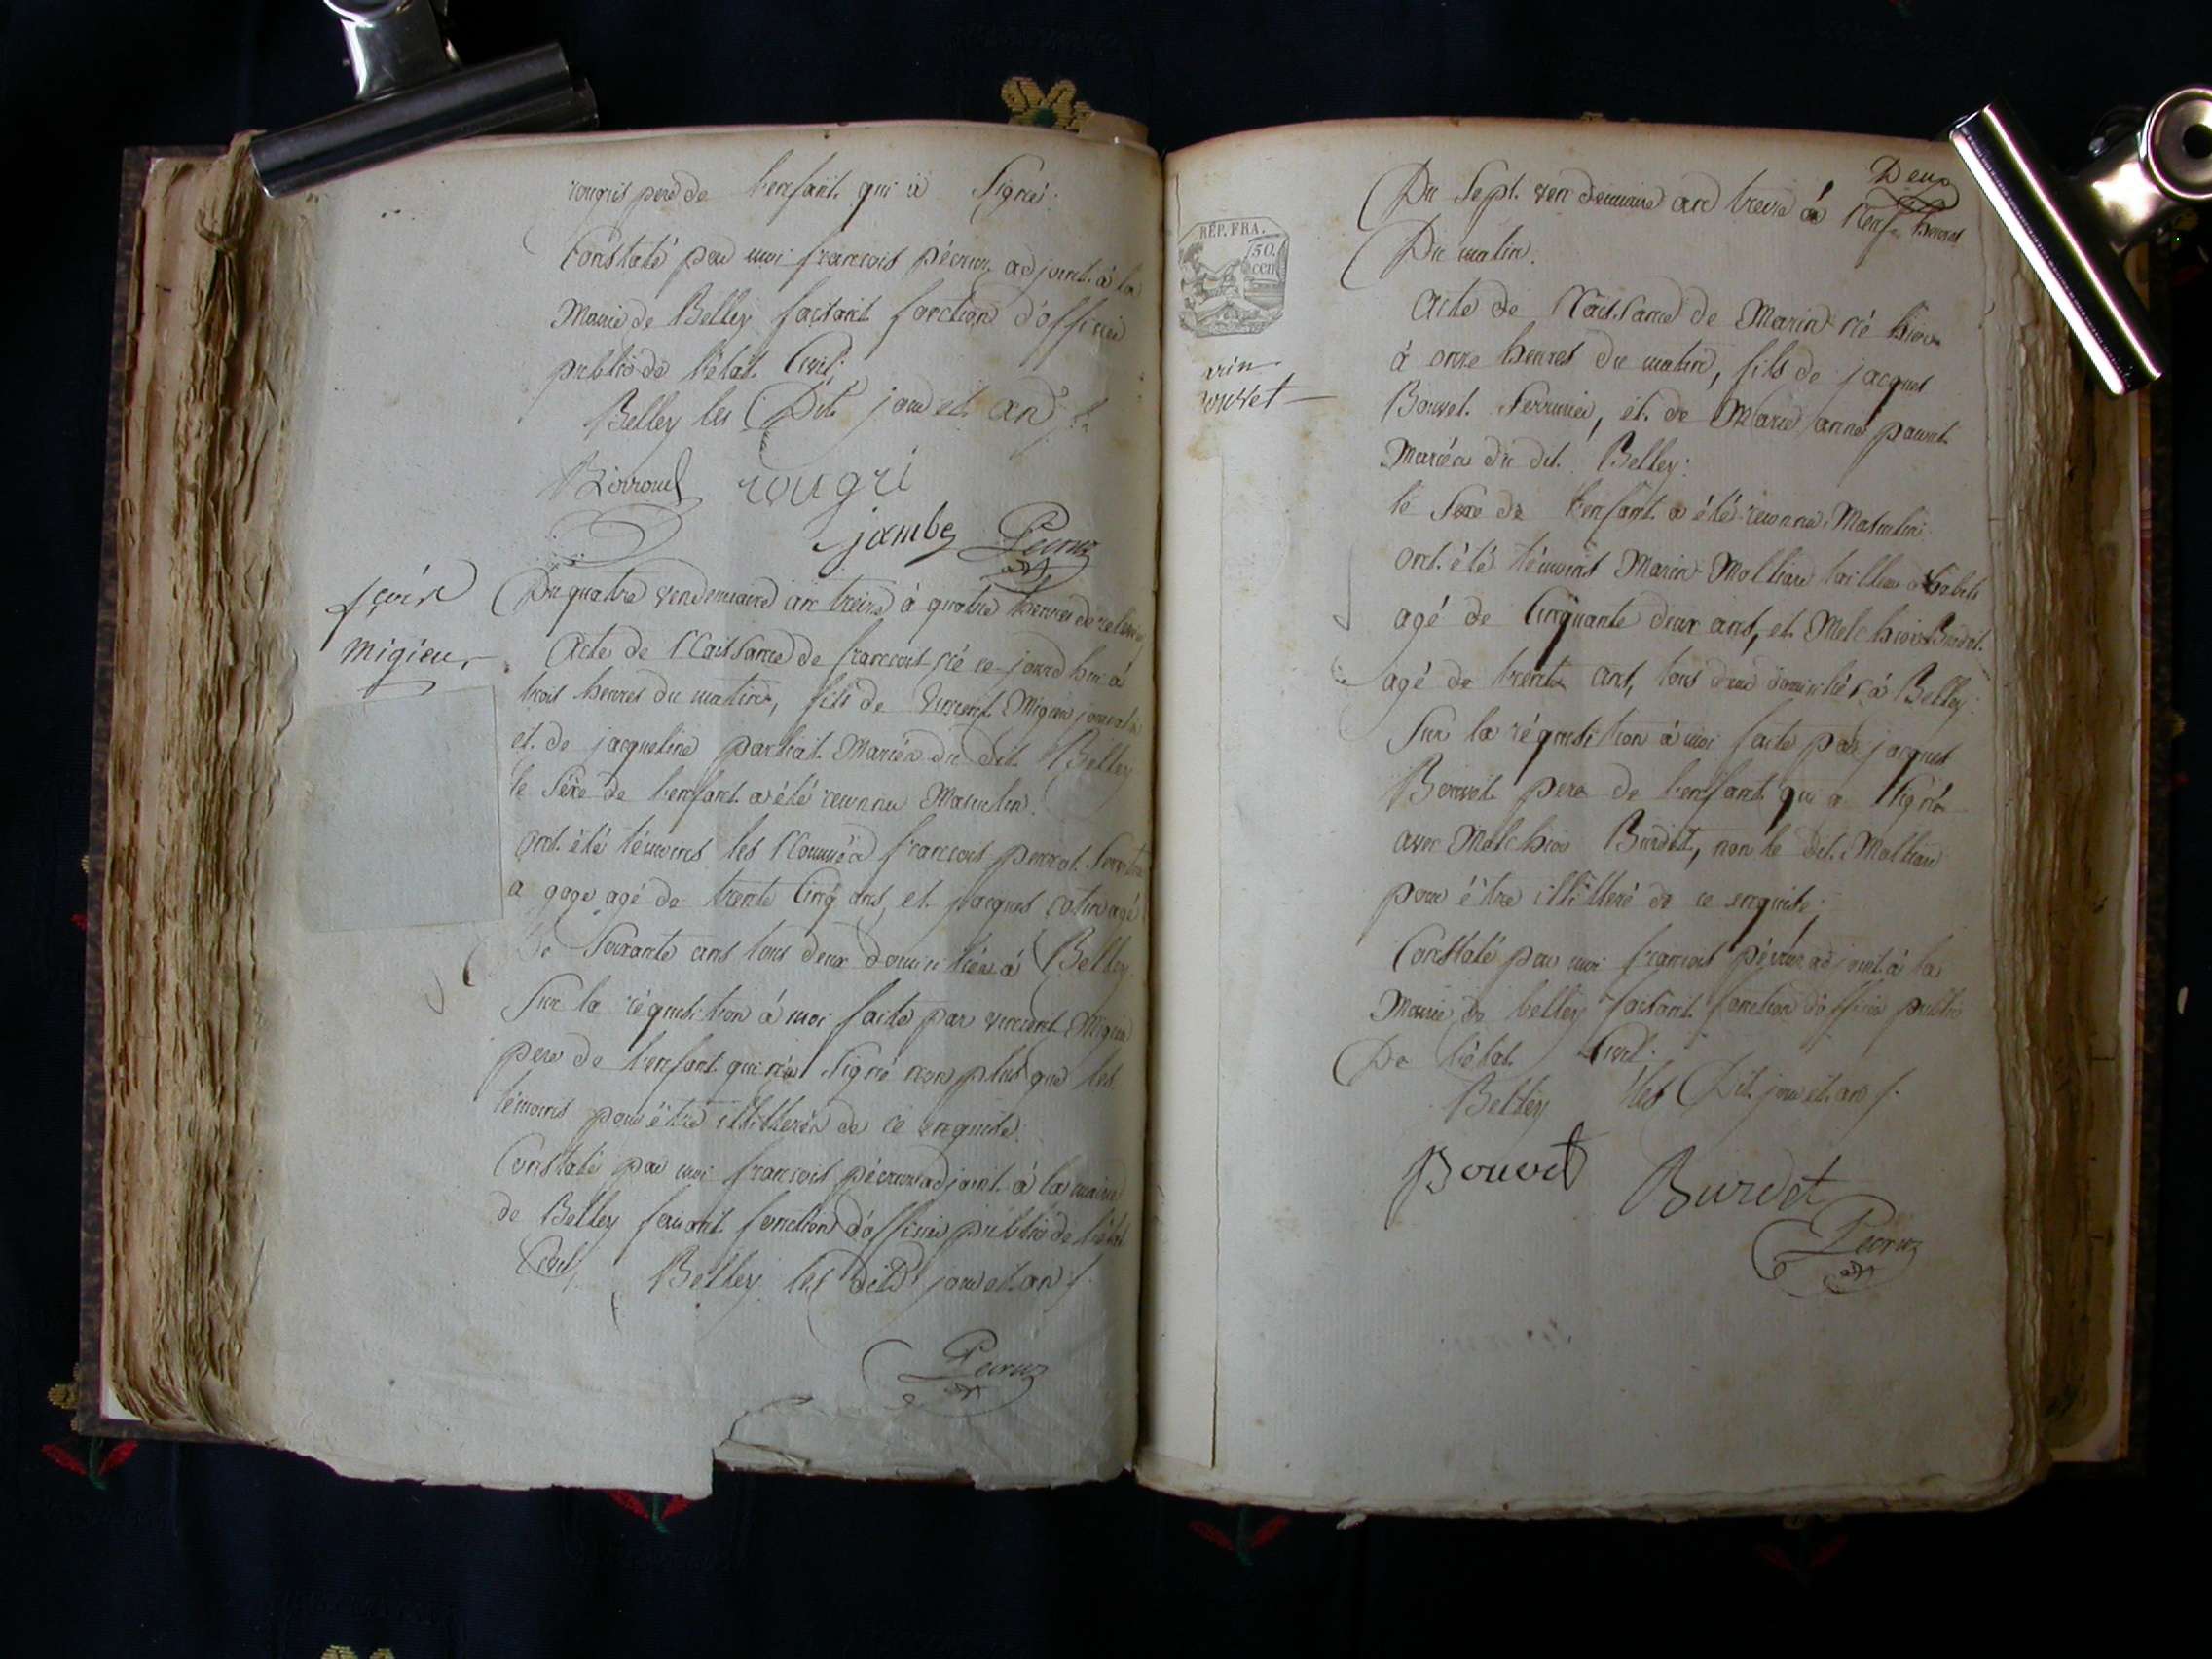 rougris pere de l'enfant qui a Signé:
Constaté par moi françois pécruz adjoint à la
Mairie de Belley faisant fonction d'officier
public de l'état Civil:
Belley les Dit jour et an
rougri
jambe Pecruz
migieu
Du quatre vendemiaire an treize à quatre heures de relevée
Acte de Naissance de francois né ce jourd'hui à
trois heures du matin, fils de vincent Migieu journalier
et de jacqueline Mariés du dit Belley
le Sexe de l'enfant a été reconnu Masculin.
ont été témoins les Nommés françois perrot
a gage agé de trente Cinq ans, et jacques agé
De Soixante ans tous deux domiciliés à Belley
Sur la réquisition à moi faite par vincent Migieu
pere de l'enfant qui n'a Signé non plus que les
témoins pour être illitterés de ce enquise.
Constaté par moi françois pécruz adjoint à la mairie
de Belley faisant fonction d'officier public de l'état
Civil, Belley les dits jour et an
Pecruz
Deux
Du Sept vendemiaire an treize à Neuf heures
Du matin.
RÉP. FRA.
50.
cen
arin
ouvet
Acte de Naissance de Marin né hier
à onze heures du matin, fils de jacques
Bouvet Serrurier, et de Marie anne
Mariés du dit Belley:
le Sexe de l'enfant a été reconnu Masculin
ont été témoins Marin Molliard tailleur d'habits
agé de Cinquante deux ans, et Melchior Burdet
agé de trente ans, tous deux domiciliés à Belley:
Sur la réquisition à moi faite par jacques
Bouvet pere de l'enfant qui a Signé
avec Melchior Burdet, non le dit Molliard
pour être illitteré de ce enquise;
Constaté par moi françois pécruz adjoint à la
Mairie de belley faisant fonction d'officier public
De l'état Civil:
Belley les Dit jour et an
Bouvet Burdet
Pecruz